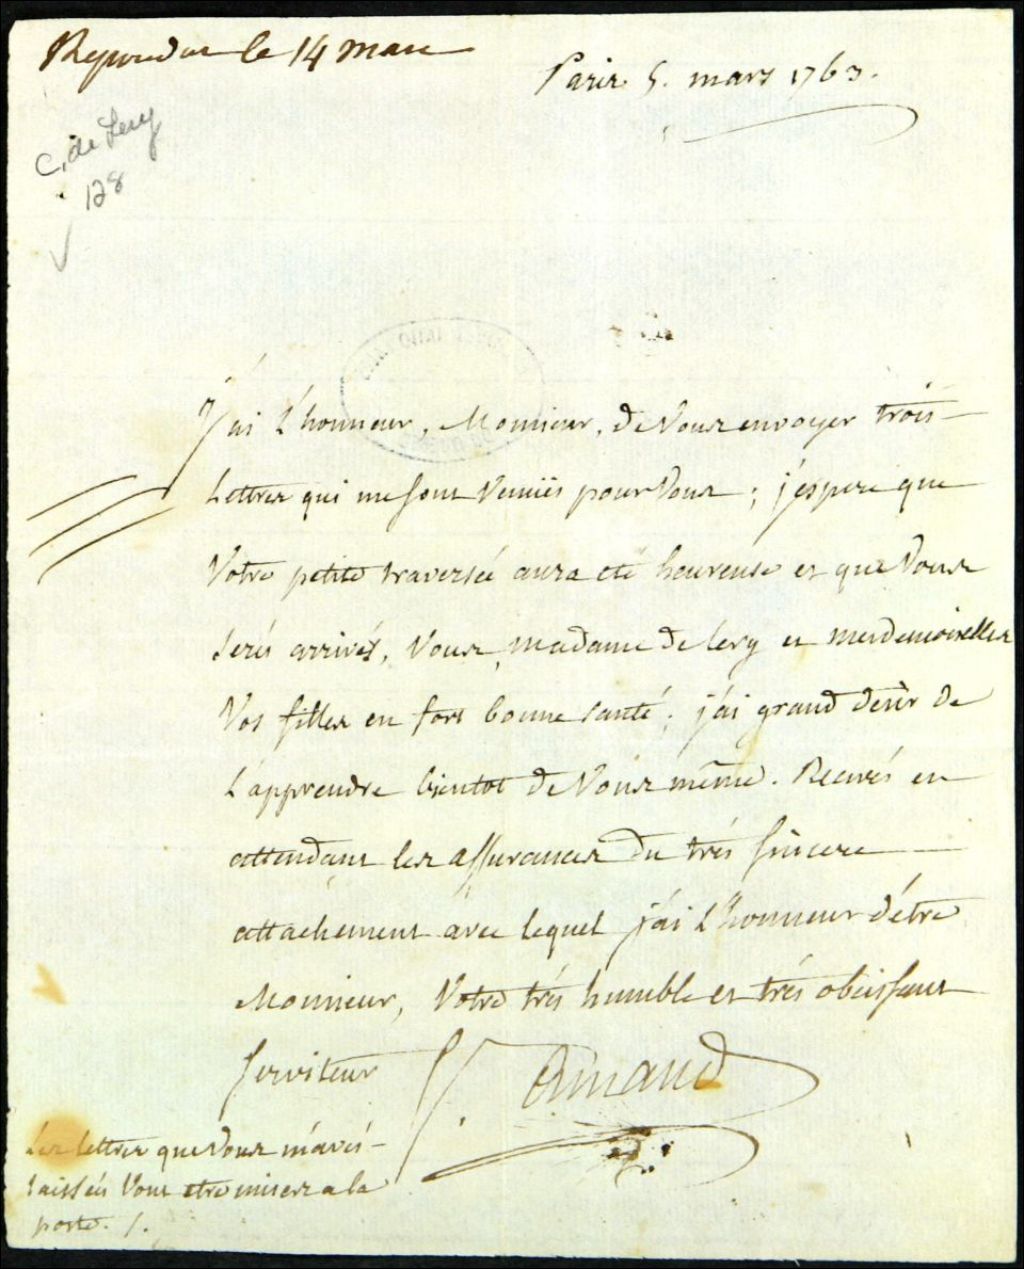 Repondue le 14 mars
Paris 5. mars 1763.
C. de Lery
128
J'ai l'honneur, Monsieur, de Vous envoyer trois
Lettres qui me sont Venuës pour Vous ; j'espere que
Votre petite traversée aura été heureuse et que Vous
serés arrivés, Vous, Madame de Lery et mesdemoiselles
Vos filles en fort bonne santé ; j'ai grand desir de
l'apprendre bientot de Vous même. Recevés en
attendant les assurances du trés sincere
attachement avec lequel j'ai l'honneur d'être
Monsieur, Votre trés humble et trés obeissant
Serviteur
Les lettres que Vous m'avés
laissées Vont etre mises a la
poste. /.